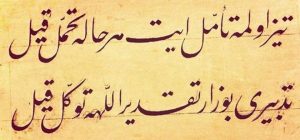 تیز اولمه تأمّل ایت هر حاله تحمّل قیل
تدبیری بوزار تقدیر اللّهه توکّل قیل